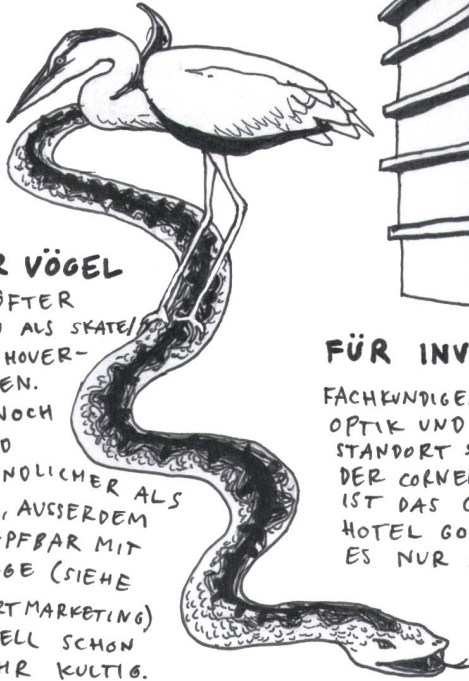 R VÖGEL
ÖFTER
ALS SKATE/
HOVER-
EN.
NOCH
D
NDLICHER ALS
, AUSSERDEM
PFBAR MIT
GE (SIEHE
RTMARKETING)
ELL SCHON
HR KULTIG.
FÜR INV
FACHKUNDIGE
OPTIK UND
STANDORT S
DER CORNE
IST DAS
HOTEL GO
ES NUR